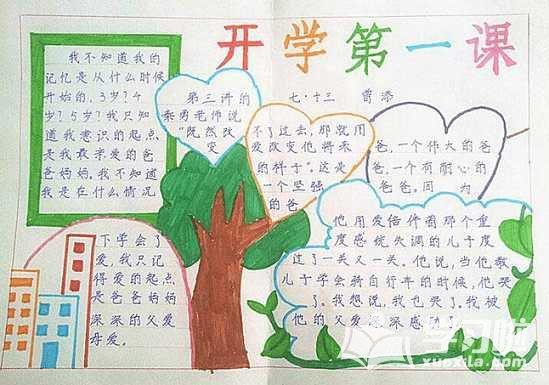 开学第一课
七·十三 曾添
我不知道我的
记忆是从什么时候
开始的，3岁？4
岁？5岁？我只知
道我意识的起点
是我最亲爱的爸
爸妈妈。我不知道
我是在什么情况
下学会了
爱，我只记
得爱的起点
是爸爸妈妈
深深的父爱
母爱。
第三讲的
秦勇老师说
“既然改
变
不了过去，那就用
爱改变他将来
的样子”。这是
一个坚强
的爸
爸，一个伟大的爸
爸，一个有耐心的
爸爸。因
为
他用爱陪伴着那个重
度感统失调的儿子度
过了一关又一关。他说，当他教
儿子学会骑自行车的时候，他哭
了。我想说，我也哭了。我被
他的父爱深深感动了
学习啦
xuexila.com